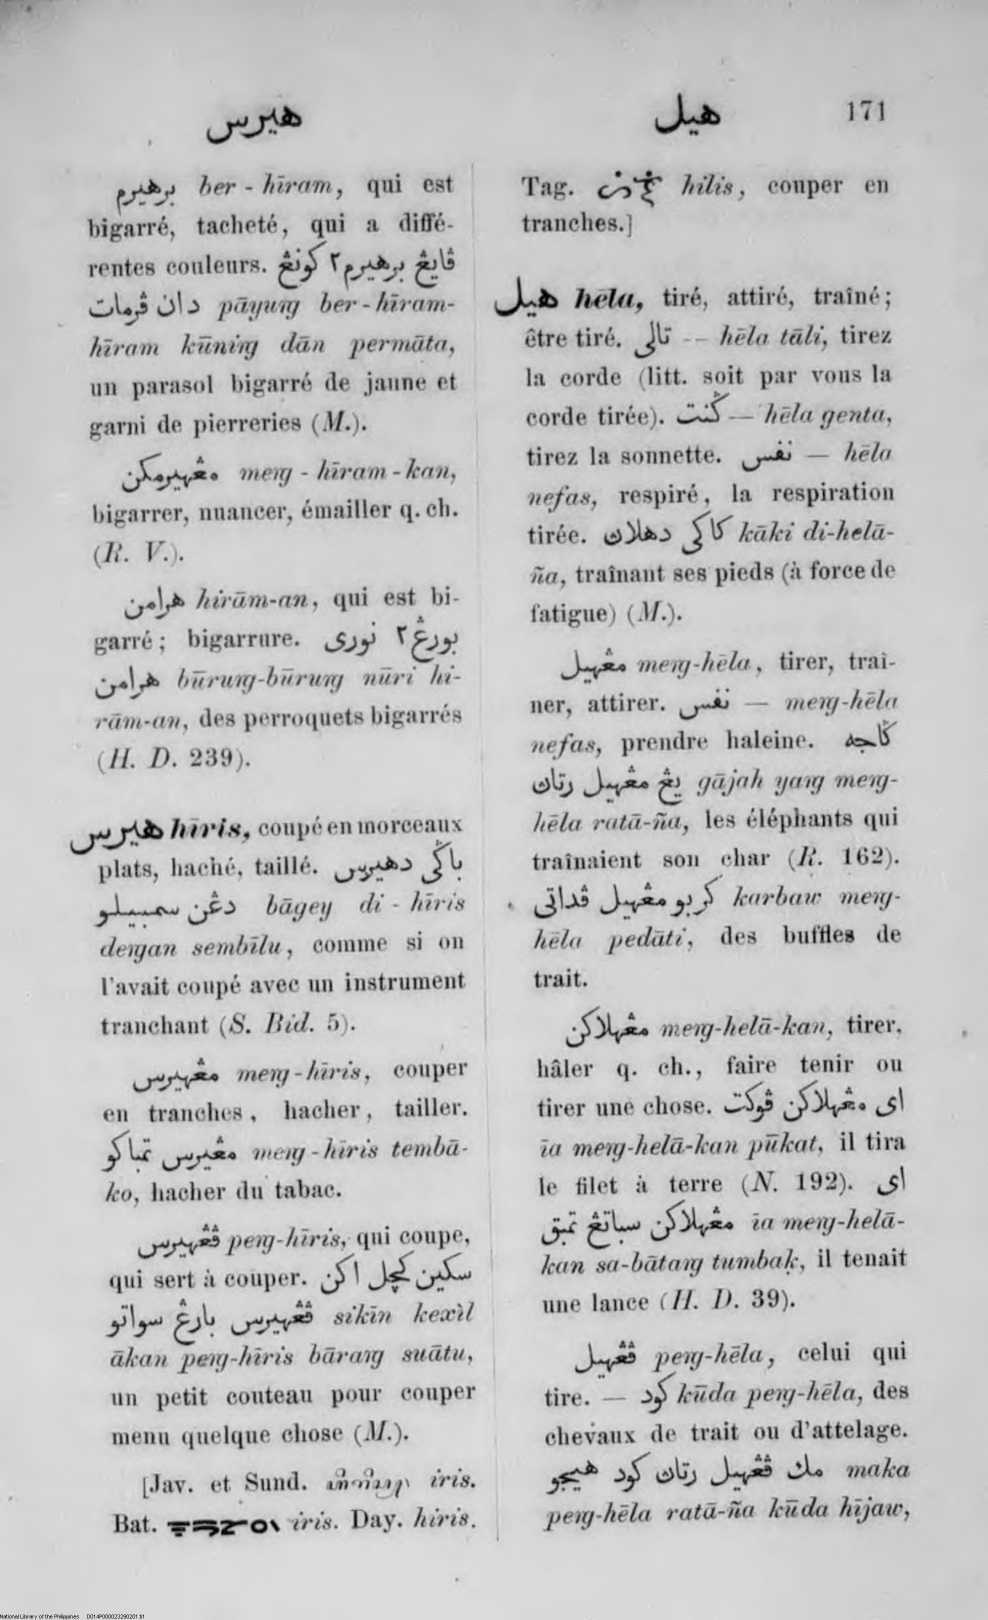 هيرس
هيل 171
برهيرم ber-hīram, qui est
bigarré, tacheté, qui a diffé-
rentes couleurs. ڤايڠ برهيرم٢ كونڠ
دان ڤرمات pāyung ber-hīram-
hīram kūning dān permāta,
un parasol bigarré de jaune et
garni de pierreries (M.).
مڠهيرمكن meng-hīram-kan,
bigarrer, nuancer, émailler q. ch.
(R. V.).
هرامن hirām-an, qui est bi-
garré; bigarrure. بورڠ٢ نورى
هرامن būrung-būrung nūri hi-
rām-an, des perroquets bigarrés
(H. D. 239).
هيرس hīris, coupé en morceaux
plats, haché, taillé. باݢى دهيرس
دڠن سمبيلو bāgey di-hīris
dengan sembīlu, comme si on
l'avait coupé avec un instrument
tranchant (S. Bid. 5).
مڠهيرس meng-hīris, couper
en tranches, hacher, tailler.
مڠيرس تمباكو meng-hīris tembā-
ko, hacher du tabac.
ڤڠهيرس peng-hīris, qui coupe,
qui sert à couper. سكين كچل اكن
ڤڠهيرس بارڠ سواتو sikīn kexìl
ākan peng-hīris bārang suātu,
un petit couteau pour couper
menu quelque chose (M.).
[Jav. et Sund. iris.
Bat. iris. Day. hiris.
Tag. hilis, couper en
tranches.]
هيل hēla, tiré, attiré, traîné;
être tiré. تالى — hēla tāli, tirez
la corde (litt. soit par vous la
corde tirée). ݢنت — hēla genta,
tirez la sonnette. نفس — hēla
nefas, respiré, la respiration
tirée. كاكى دهلان kāki di-helā-
ña, traînant ses pieds (à force de
fatigue) (M.).
مڠهيل meng-hēla, tirer, traî-
ner, attirer. نفس — meng-hēla
nefas, prendre haleine. ݢاجه
يڠ مڠهيل رتان gājah yang meng-
hēla ratā-ña, les éléphants qui
traînaient son char (R. 162).
كربو مڠهيل ڤداتى karbaw meng-
hēla pedāti, des buffles de
trait.
مڠهلاكن meng-helā-kan, tirer,
hâler q. ch., faire tenir ou
tirer une chose. اى مڠهلاكن ڤوكت
īa meng-helā-kan pūkat, il tira
le filet à terre (N. 192). اى
مڠهلاكن سباتڠ تمبق īa meng-helā-
kan sa-bātang tumbaḳ, il tenait
une lance (H. D. 39).
ڤڠهيل peng-hēla, celui qui
tire. — كود kūda peng-hēla, des
chevaux de trait ou d'attelage.
مك ڤڠهيل رتان كود هيجو maka
peng-hēla ratā-ña kūda hījaw,
National Library of the Philippines